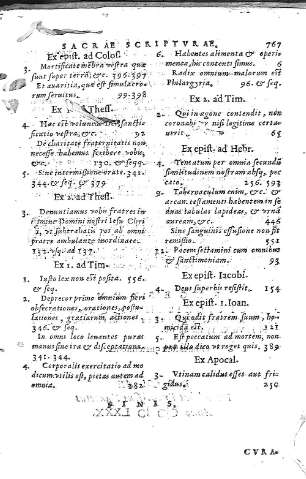 SACRAE SCRIPTVRAE. 767
Ex epist. ad Coloss.
3. Mortificate membra vestra quæ
sunt super terrã, &c. 396.397
Et avaritia, quæ est simulacro-
rum servitus. 99.398
Ex Thess.
4. Hæc est voluntas Dei sanctifi-
catio vestra, &c. 92
De charitate fraternitatis non
necesse habemus scribere vobis,
&c. 130. & seqq.
5. Sine intermissione orate. 341.
344. & seq. & 379
Ex 2. ad Thess.
3. Denuntiamus vobis fratres in
nomine Domini nostri Iesu Chri
sti, ut subtrahatis vos ab omni
fratre ambulante inordinate.
132. & 137
Ex 1. ad Tim.
1. Iusto lex non est posita. 556.
& seq.
2. Deprecor primo omnium fieri
obsecrationes, orationes, postu-
lationes, gratiarum actiones
346. & seq.
In omni loco levantes puras
manus sine ira & disceptatione.
341. 344.
4. Corporalis exercitatio ad mo
dicum utilis est, pietas autem ad
omnia. 282
6. Habentes alimenta & operi-
menta, his contenti simus. 6
Radix omnium malorum est
Philargyria. 96. & seq.
Ex 2. ad Tim.
2. Qui in agone contendit, non
coronabitur nisi legitime certa-
verit. 65
Ex epist. ad Hebr.
4. Tentatum per omnia secundũ
similitudinem nostram absq; pec-
cato. 256. 593
9. Tabernaculum enim, &c. &
arcam testamenti habentem in se
duas tabulas lapideas, & urnã
auream, &c.
Sine sanguinis effusione non fit
remissio. 551
12. Pacem sectamini cum omnibus
& sanctimoniam. 93
Ex epist. Iacobi.
4. Deus superbis resistit. 154
Ex epist. 1. Ioan.
3. Qui odit fratrem suum, ho-
micida est. 121
5. Est peccatum ad mortem, non
pro illo dico ut roget quis. 389
Ex Apocal.
3. Vtinam calidus esses aut fri-
gidus. 250
FINIS.
CVRA-